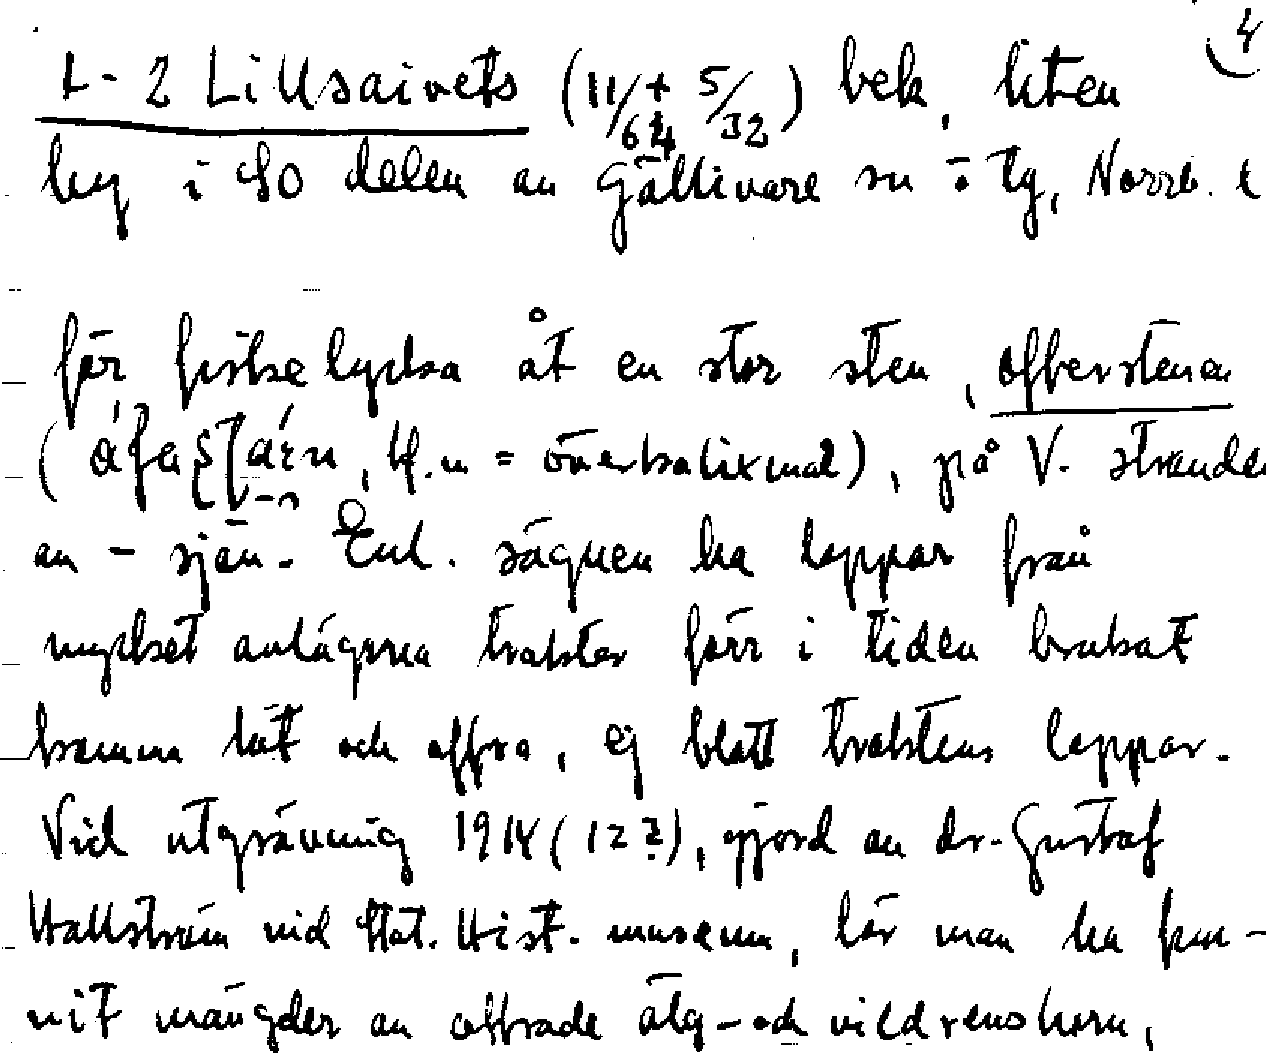 4
1-2 Lillsaivets (11/64 + 5/32) bek, liten
by i SO delen av Gällivare sn o tg, Norrb. l
för fiskelycka åt en stor sten, offerstenen
( , = överkalixmål), på V. stranden
av - sjön. Enl. sägnen ha lappar från
mycket avlägsna trakter förr i tiden brukat
komma hit och offra, ej blott traktens lappar.
Vid utgrävning 1914 (12?), gjord av dr. Gustaf
Hallström vid Stat. Hist. museum, lär man ha fun-
nit mängder av offrade älg- och vildrenshorn,